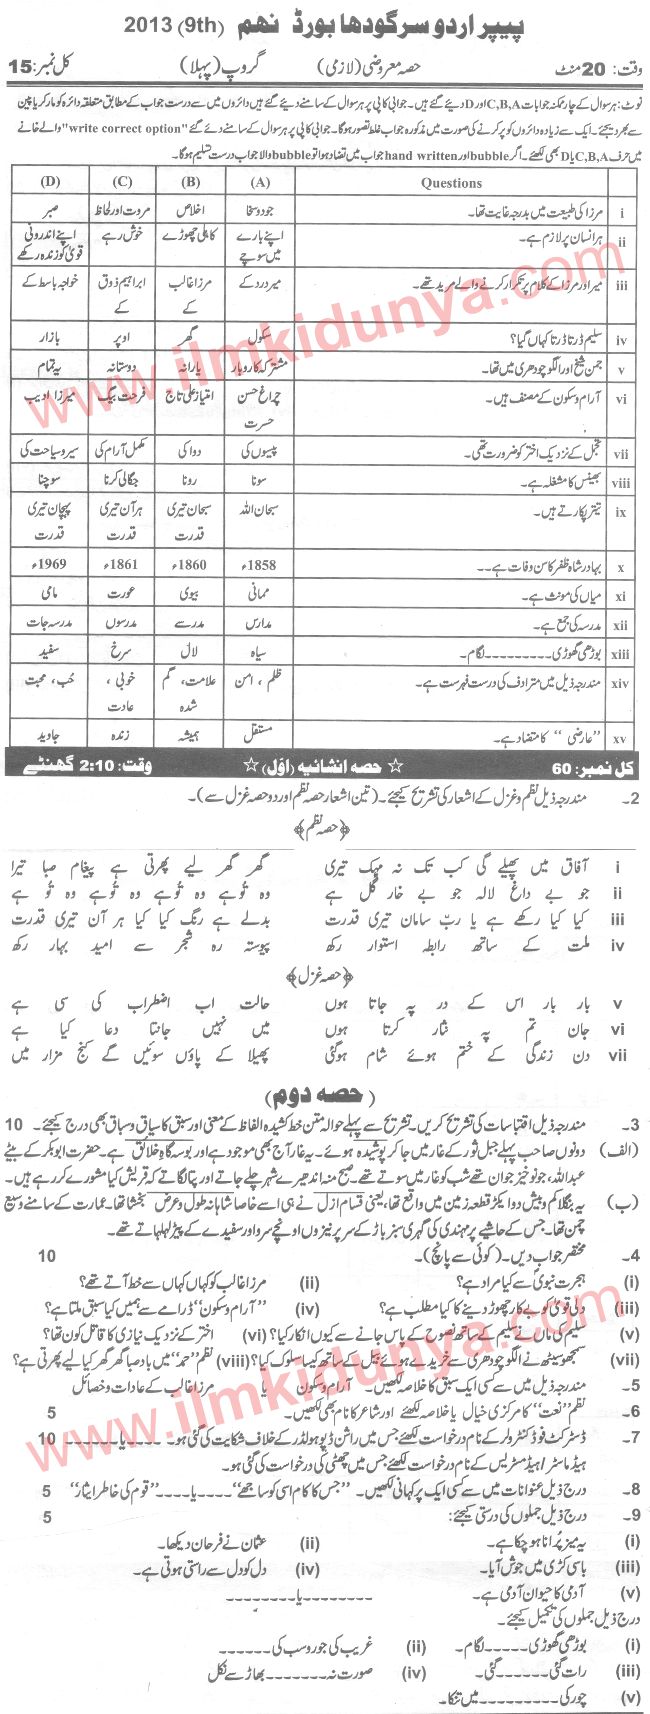 پیپر اردو سرگودھا بورڈ نہم (9th) 2013
وقت: 20 منٹ حصہ معروضی (لازمی) گروپ (پہلا) کل نمبر: 15
نوٹ: ہر سوال کے چار ممکنہ جوابات C,B,A اور D دیئے گئے ہیں۔ جوابی کاپی پر ہر سوال کے سامنے دیئے گئے دائروں میں سے درست جواب کے مطابق متعلقہ دائرہ کو مارکر یا پین
سے بھر دیجئے۔ ایک سے زیادہ دائروں کو پُر کرنے کی صورت میں مذکورہ جواب غلط تصور ہوگا۔ جوابی کاپی پر ہر سوال کے سامنے دئے گئے "write correct option" والے خانے
میں حرف C,B,A یا D بھی لکھئے۔ اگر bubble اور hand written جواب میں تضاد ہوا تو bubble والا جواب درست تسلیم ہوگا۔
Questions (A) (B) (C) (D)
i مرزا کی طبیعت میں بدرجہ غایت تھا۔ جود و سخا اخلاص مروت اور لحاظ صبر
ii ہر انسان پر لازم ہے۔ اپنے بارے میں سوچے کاہلی چھوڑے خوش رہے اپنے اندرونی قویٰ کو زندہ رکھے
iii میر اور مرزا کے کلام پر تکرار کرنے والے مرید تھے۔ میر درد کے مرزا غالب کے ابراہیم ذوق کے خواجہ باسط کے
iv سلیم ڈرتا ڈرتا کہاں گیا؟ سکول گھر اوپر بازار
v جمن شیخ اور الگو چودھری میں تھا۔ مشترکہ کاروبار یارانہ دوستانہ یہ تمام
vi آرام و سکون کے مصنف ہیں۔ چراغ حسن حسرت امتیاز علی تاج فرحت بیگ میرزا ادیب
vii تجمل کے نزدیک اختر کو ضرورت تھی۔ پیسوں کی دوا کی مکمل آرام کی سیر و سیاحت کی
viii بھینس کا مشغلہ ہے۔ سونا رونا جگالی کرنا سوچنا
ix تیتر پکارتے ہیں۔ سبحان اللہ سبحان تیری قدرت ہر آن تیری قدرت پہچان تیری قدرت
x بہادر شاہ ظفر کا سن وفات ہے۔۔ 1858ء 1860ء 1861ء 1969ء
xi میاں کی مونث ہے۔ ممانی بیوی عورت مامی
xii مدرسہ کی جمع ہے۔ مدارس مدرسے مدرسوں مدرسہ جات
xiii بوڑھی گھوڑی۔۔۔۔۔۔۔۔لگام۔ سیاہ لال سرخ سفید
xiv مندرجہ ذیل میں مترادف کی درست فہرست ہے۔ ظلم ، امن علامت، گم شدہ خوبی ، عادت حُب، محبت
xv ''عارضی'' کا متضاد ہے۔ مستقل ہمیشہ زندہ جاوید
کل نمبر: 60 ☆ حصہ انشائیہ (اوّل) ☆ وقت: 2:10 گھنٹے
2۔ مندرجہ ذیل نظم و غزل کے اشعار کی تشریح کیجئے۔ (تین اشعار حصہ نظم اور دو حصہ غزل سے)۔
﴿حصہ نظم﴾
i آفاق میں پھیلے گی کب تک نہ مہک تیری گھر گھر لیے پھرتی ہے پیغام صبا تیرا
ii جو بے داغ لالہ جو بے خار گل ہے وہ تُو ہے وہ تُو ہے وہ تُو ہے وہ تُو ہے
iii کیا کیا رکھے ہے یا ربّ سامان تیری قدرت بدلے ہے رنگ کیا کیا ہر آن تیری قدرت
iv ملت کے ساتھ رابطہ استوار رکھ پیوستہ رہ شجر سے امید بہار رکھ
﴿حصہ غزل﴾
v بار بار اس کے در پہ جاتا ہوں حالت اب اضطراب کی سی ہے
vi جان تم پہ نثار کرتا ہوں میں نہیں جانتا دعا کیا ہے
vii دن زندگی کے ختم ہوئے شام ہوگئی پھیلا کے پاؤں سوئیں گے کنج مزار میں
(حصہ دوم)
3۔ مندرجہ ذیل اقتباسات کی تشریح کریں۔ تشریح سے پہلے حوالہ متن خط کشیدہ الفاظ کے معنی اور سبق کا سیاق و سباق بھی درج کیجئے۔ 10
(الف) دونوں صاحب پہلے جبل ثور کے غار میں جا کر پوشیدہ ہوئے۔ یہ غار آج بھی موجود ہے اور بوسہ گاہِ خلائق ہے۔ حضرت ابوبکر کے بیٹے
عبداللہ، جو نوخیز جوان تھے شب کو غار میں سوتے تھے۔ صبح منہ اندھیرے شہر چلے جاتے اور پتا لگاتے کہ قریش کیا مشورے کر رہے ہیں۔
(ب) یہ بنگلا کم و بیش دو ایکڑ قطعہ زمین میں واقع تھا، یعنی قسام ازل نے ہی اسے خاصا شاہانہ طول و عرض بخشا تھا۔ عمارت کے سامنے وسیع
چمن تھا۔ جس کے حاشیے پر مہندی کی گہری سبز باڑ کے سر پر نیزوں اونچے سرو اور سفیدے کے پیڑ لہلہاتے تھے۔
4۔ مختصر جواب دیں۔ (کوئی سے پانچ)۔ 10
(i) ہجرت نبویؐ سے کیا مراد ہے؟ (ii) مرزا غالب کو کہاں کہاں سے خط آتے تھے؟
(iii) دلی قویٰ کو بے کار چھوڑ دینے کا کیا مطلب ہے؟ (iv) ''آرام و سکون'' ڈرامے سے ہمیں کیا سبق ملتا ہے؟
(v) سلیم کی ماں نے سلیم کے ساتھ نصوح کے پاس جانے سے کیوں انکار کیا؟ (vi) اختر کے نزدیک نیازی کا قاتل کون تھا؟
(vii) سمجھو سیٹھ نے الگو چودھری سے خریدے ہوئے بیل سے ساتھ کیسا سلوک کیا؟ (viii) نظم ''حمد'' میں باد صبا گھر گھر کیا لیے پھرتی ہے؟
5۔ مندرجہ ذیل میں سے کسی ایک سبق کا خلاصہ لکھیں۔ آرام و سکون یا مرزا غالب کے عادات و خصائل
6۔ نظم ''نعت'' کا مرکزی خیال یا خلاصہ لکھئے اور شاعر کا نام بھی لکھیں۔ 5
7۔ ڈسٹرکٹ فوڈ کنٹرولر کے نام درخواست لکھئے جس میں راشن ڈپو ہولڈر کے خلاف شکایت کی گئی ہو۔ ۔۔۔۔یا۔۔۔۔ 10
ہیڈ ماسٹر/ ہیڈ مسٹریس کے نام درخواست لکھئے جس میں چھٹی کی درخواست کی گئی ہو۔
8۔ درج ذیل عنوانات میں سے کسی ایک پر کہانی لکھیں۔ ''جس کا کام اسی کو ساجھے''۔۔۔۔یا۔۔۔۔''قوم کی خاطر ایثار'' 5
9۔ درج ذیل جملوں کی درستی کیجئے: 5
(i) یہ میز پُرانا ہو چکا ہے۔ (ii) عثمان نے فرحان دیکھا۔
(iii) باسی کڑی میں جوش آیا۔ (iv) دل کو دل سے راستی ہوتی ہے۔
(v) آدمی کا حیوان آدمی ہے۔ ۔۔۔۔۔۔۔۔یا۔۔۔۔۔۔۔۔
درج ذیل جملوں کی تکمیل کیجئے۔
(i) بوڑھی گھوڑی۔۔۔۔۔لگام۔ (ii) غریب کی جورو سب کی۔۔۔۔۔۔
(iii) رات گئی۔۔۔۔۔گئی۔ (iv) صورت نہ۔۔۔۔۔۔۔بھاڑ سے نکل
(v) چور کی۔۔۔۔۔۔۔۔میں تنکا۔
www.ilmkidunya.com
www.ilmkidunya.com